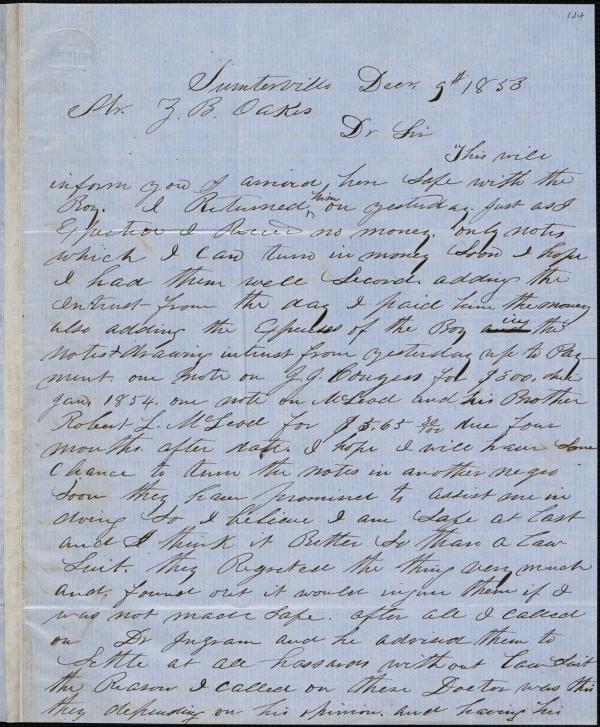 134
Sumterville Decr. 9th 1853
Mr. Z. B. Oakes
Dr Sir
This will
inform you I arrived here Safe with the
Boy. I Returned him on yesterday. Just as I
Expected I Recied no money. only notes
which I can turn in money Soon I hope
I had them well Secord adding the
intrust from the day I paid him the money
also adding the Expenses of the Boy in the
notes & drawing intrust from yesterday up to Pay
ment. one note on J. J. for $300. due
Jan. 1854. one note on McLeod and his Brother
Robert L. McLeod for $565 30/100 due four
months after date. I hope I will have Some
Chance to turn the notes in another negro
Soon they have promised to assist me in
doing So I believe I am Safe at Last
and I think it Better So than a Law
Suit. they Regreted the thing very much
and found out it would injure them if I
was not made Safe. after all I called
on Dr Ingram and he advised them to
Settle at all hassards without Law Suit
the Reason I called on these Doctor was this
they depending on his opinion. and having his